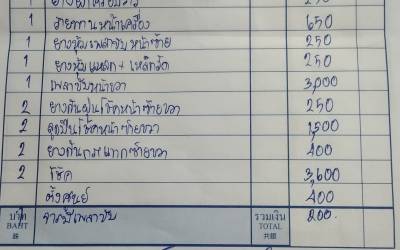 250
1 สายพานหน้าเครื่อง 650
1 ยางหุ้มเพลาขับหน้าซ้าย 250
1 ยางหุ้มแหลก + เหล็กรัด 250
1 เพลาขับหน้าขวา 3,000
2 ยางกันฝุ่นโช๊คหน้าซ้ายขวา 250
2 ลูกปืนโช๊คหน้าซ้ายขวา 1,500
2 ยางกันกระแทกซ้ายขวา 400
2 โช๊ค 3,600
ตั้งศูนย์ 400
บาท BAHT 銖 รวมเงิน TOTAL 共銀 200.